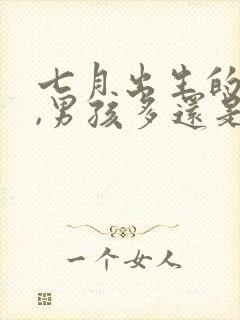 七月出生的
,男孩多還是
一个女人